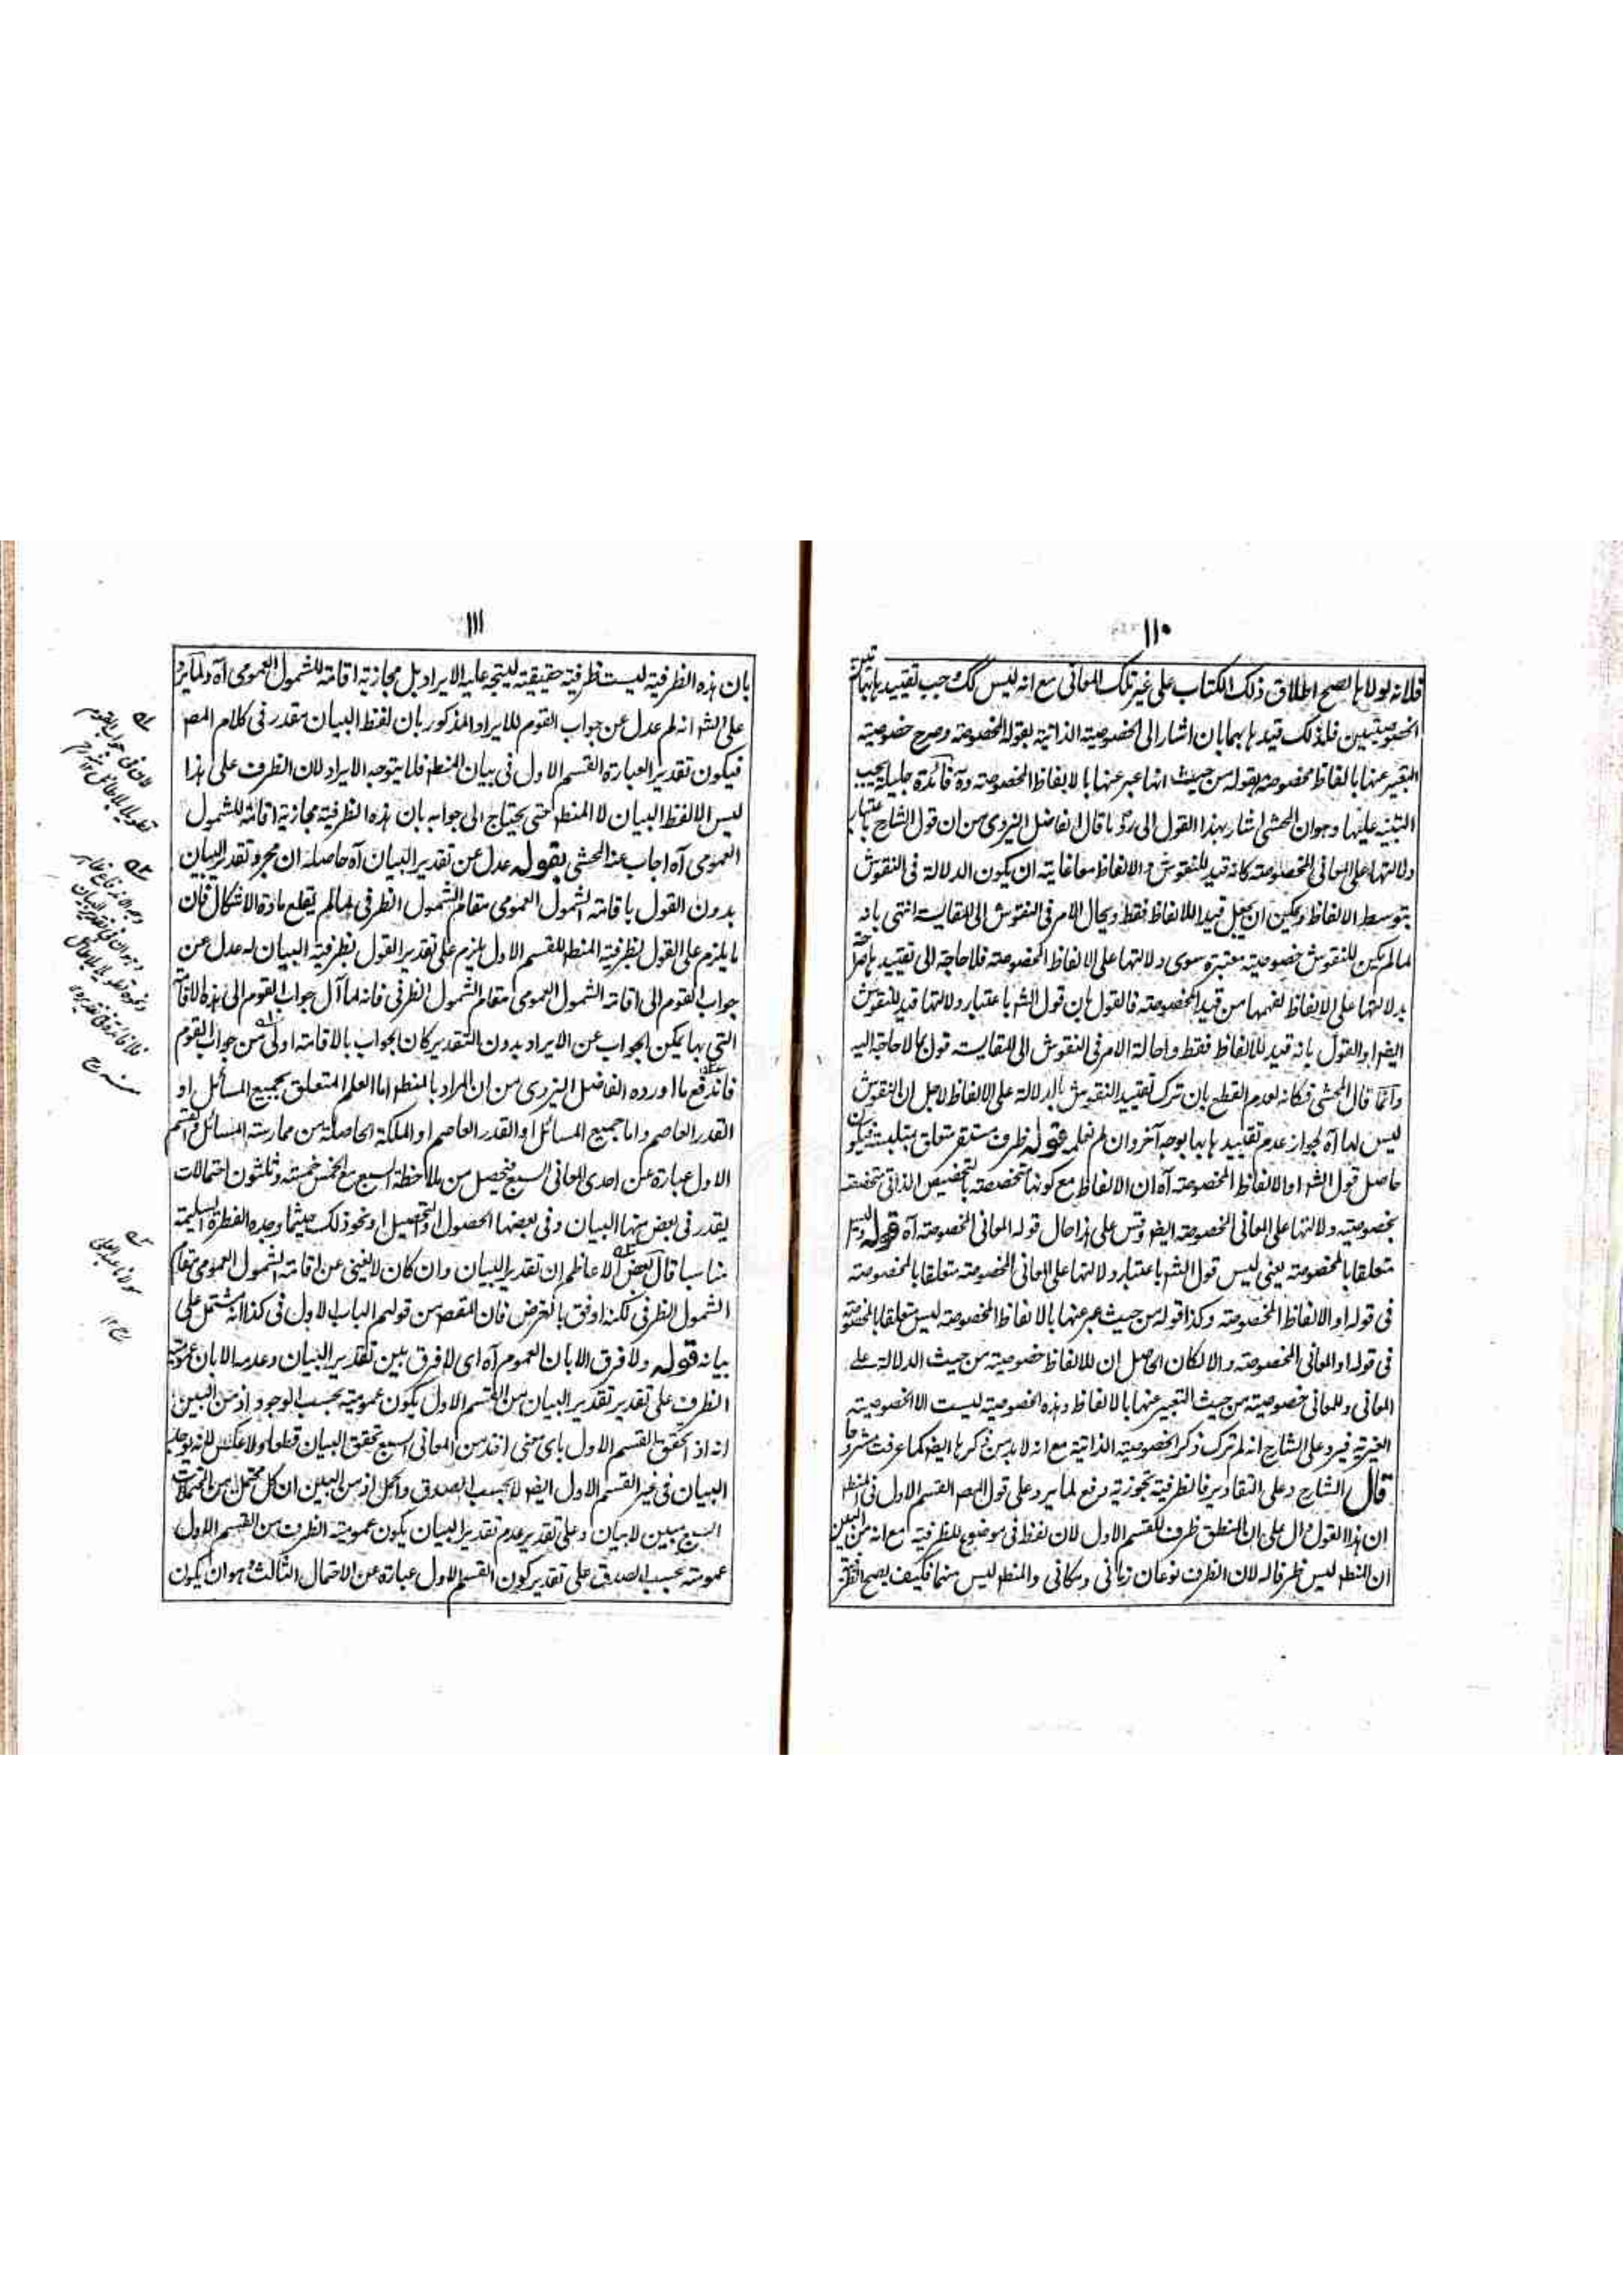 ١١٠
فلانه لولاها يصح اطلاق ذلك الكتاب على غير تلك المعاني مع انه ليس كك وجب تقييدها بهاتين
الخصوصيتين فلذلك قيدها بهما بان اشار الى الخصوصية الذاتية بقوله المخصوصة وصرح خصوصية
التعبير عنها بالفاظ مخصوصة بقوله من حيث انها عبر عنها بالالفاظ المخصوصة وه فائدة جليلة يجب
التنبيه عليها وهو ان المحشى اشار بهذا القول الى رد ما قال الفاضل اليزدى من ان قول الشارح باعتبار
دلالتها على المعاني المخصوصة كانه قيد للنقوش والالفاظ معا غايته ان يكون الدلالة في النقوش
بتوسط الالفاظ ويمكن ان يجعل قيدا للالفاظ فقط ويحال الامر في النقوش الى المقايسة انتهى بانه
لما لم يكن للنقوش خصوصية معتبرة سوى دلالتها على الالفاظ المخصوصة فلا حاجة الى تقييدها صراحة
بدلالتها على الالفاظ لفهمها من قيد المخصوصة فالقول بان قول الشه باعتبار دلالتها قيد للنقوش
ايضا او القول بانه قيد للالفاظ فقط واحالة الامر في النقوش الى المقايسة قول بما لا حاجة اليه
وانما قال المحشى فكانه لعدم القطع بان ترك تقييد النقوش بالدلالة على الالفاظ لاجل ان النقوش
ليس لها آه لجواز عدم تقييدها بها بوجه آخر وان لم نعلمه قوله ظرف مستقر متعلق بتلبست فيكون
حاصل قول الشه او الالفاظ المخصوصة آه ان الالفاظ مع كونها متخصصة بالتخصيص الذاتي متخصصة
بخصوصية دلالتها على المعاني المخصوصة ايضا وقس على هذا حال قوله المعاني المخصوصة آه قوله وليس
متعلقا بالمخصوصة يعني ليس قول الشه باعتبار دلالتها على المعاني المخصوصة متعلقا بالمخصوصة
في قوله او الالفاظ المخصوصة وكذا قوله من حيث عبر عنها بالالفاظ المخصوصة ليس متعلقا بالمخصوصة
في قوله او المعاني المخصوصة والا لكان الحاصل ان للالفاظ خصوصية من حيث الدلالة على
المعاني وللمعاني خصوصية من حيث التعبير عنها بالالفاظ وهذه الخصوصية ليست الا الخصوصية
الغيرية فيرد على الشارح انه لم ترك ذكر الخصوصية الذاتية مع انه لا بد من ذكرها ايضا كما عرفت مشروحا
قال الشارح وعلى التقادير فالظرفية تجوزية دفع لما يرد على قول المص القسم الاول في المنطق
ان هذا القول دال على ان المنطق ظرف للقسم الاول لان لفظ في موضوع للظرفية مع انه من البين
ان المنطق ليس ظرفا له لان الظرف نوعان زماني ومكاني والمنطق ليس منهما فكيف يصح الظرفية
١١١
بان هذه الظرفية ليست ظرفية حقيقية ليتجه عليه الايراد بل مجازية اقامة للشمول العمومي آه ولما يرد
على الشه انه لم عدل عن جواب القوم للايراد المذكور بان لفظ البيان مقدر في كلام المص
فيكون تقدير العبارة القسم الاول في بيان المنطق فلا يتوجه الايراد لان الظرف على هذا
ليس الا لفظ البيان لا المنطق حتى يحتاج الى جوابه بان هذه الظرفية مجازية اقامة للشمول
العمومي آه اجاب عنه المحشى بقوله عدل عن تقدير البيان آه حاصله ان مجرد تقدير البيان
بدون القول باقامة الشمول العمومي مقام الشمول الظرفي مما لم يقلع مادة الاشكال فان
ما يلزم على القول بظرفية المنطق للقسم الاول يلزم على تقدير القول بظرفية البيان له عدل عن
جواب القوم الى اقامة الشمول العمومي مقام الشمول الظرفي فانه لما آل جواب القوم الى هذه الاقامة
التي بها يمكن الجواب عن الايراد بدون التقدير كان الجواب بالاقامة اولى من جواب القوم
فاندفع ما اورده الفاضل اليزدى من ان المراد بالمنطق اما العلم المتعلق بجميع المسائل او
القدر العاصم واما جميع المسائل او القدر العاصم او الملكة الحاصلة من ممارسة المسائل والقسم
الاول عبارة عن احدى المعاني السبع فيحصل من ملاحظة السبع مع الخمس خمسة وثلثون احتمالات
يقدر في بعض منها البيان وفي بعضها الحصول او التحصيل او نحو ذلك حيثما وجده الفطرة السليمة
مناسبا قال بعض الاعاظم ان تقدير البيان وان كان لا يغني عن اقامة الشمول العمومي مقام
الشمول الظرفي لكنه اوفق بالغرض فان المقصود من قولهم الباب الاول في كذا انه مشتمل على
بيانه قوله ولا فرق الا بان العموم آه اى لا فرق بين تقدير البيان وعدمه الا بان عمومية
الظرف على تقدير تقدير البيان من القسم الاول يكون عمومية بحسب الوجود اذ من البين
انه اذا تحقق القسم الاول باى معنى اخذ من المعاني السبع تحقق البيان قطعا ولا عكس لانه يوجد
البيان في غير القسم الاول ايضا لا بحسب الصدق والحمل اذ من البين ان كل محتمل من المحتملات
السبع مبين لا بيان وعلى تقدير عدم تقدير البيان يكون عمومية الظرف من القسم الاول
عمومية بحسب الصدق على تقدير كون القسم الاول عبارة عن الاحتمال الثالث وهو ان يكون
لان في جواب القوم
تطويلا بلا طائل
مولانا عبد العلى